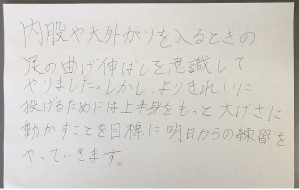 内股や大外がりを入るときの
足の曲げ伸ばしを意識して
やりました。しかし、よりきれいに
投げるためには上半身をもっと大げさに
動かすことを目標に明日からの練習を
やっていきます。